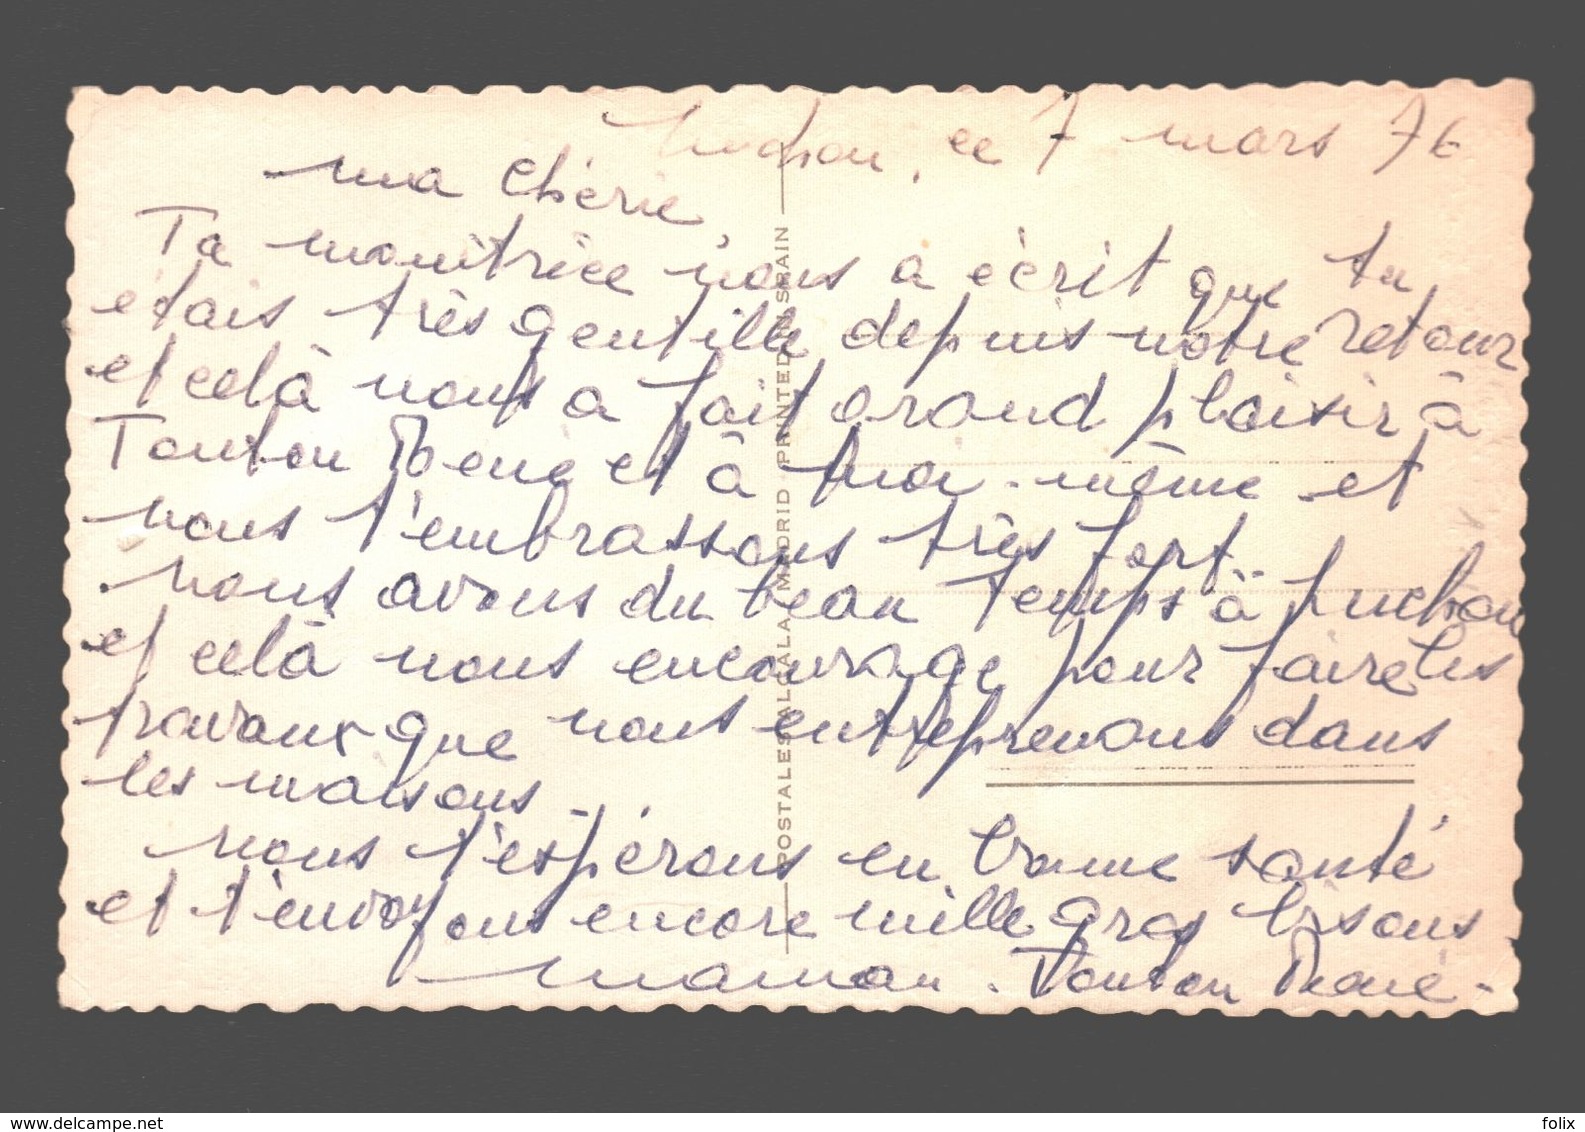 Luchon, le 7 mars 76
ma chérie,
Ta monitrice nous a écrit que tu
étais très gentille depuis notre retour
et celà nous a fait grand plaisir à
Tonton René et à moi-même et
nous t'embrassons très fort.
nous avons du beau temps à Luchon
et celà nous encourage pour faire les
travaux que nous entreprenons dans
les maisons.
nous t'espérons en bonne santé
et t'envoyons encore mille gros bisous.
maman. Tonton René.
POSTALES ALCALA, MADRID PRINTED IN SPAIN
www.delcampe.net
folix